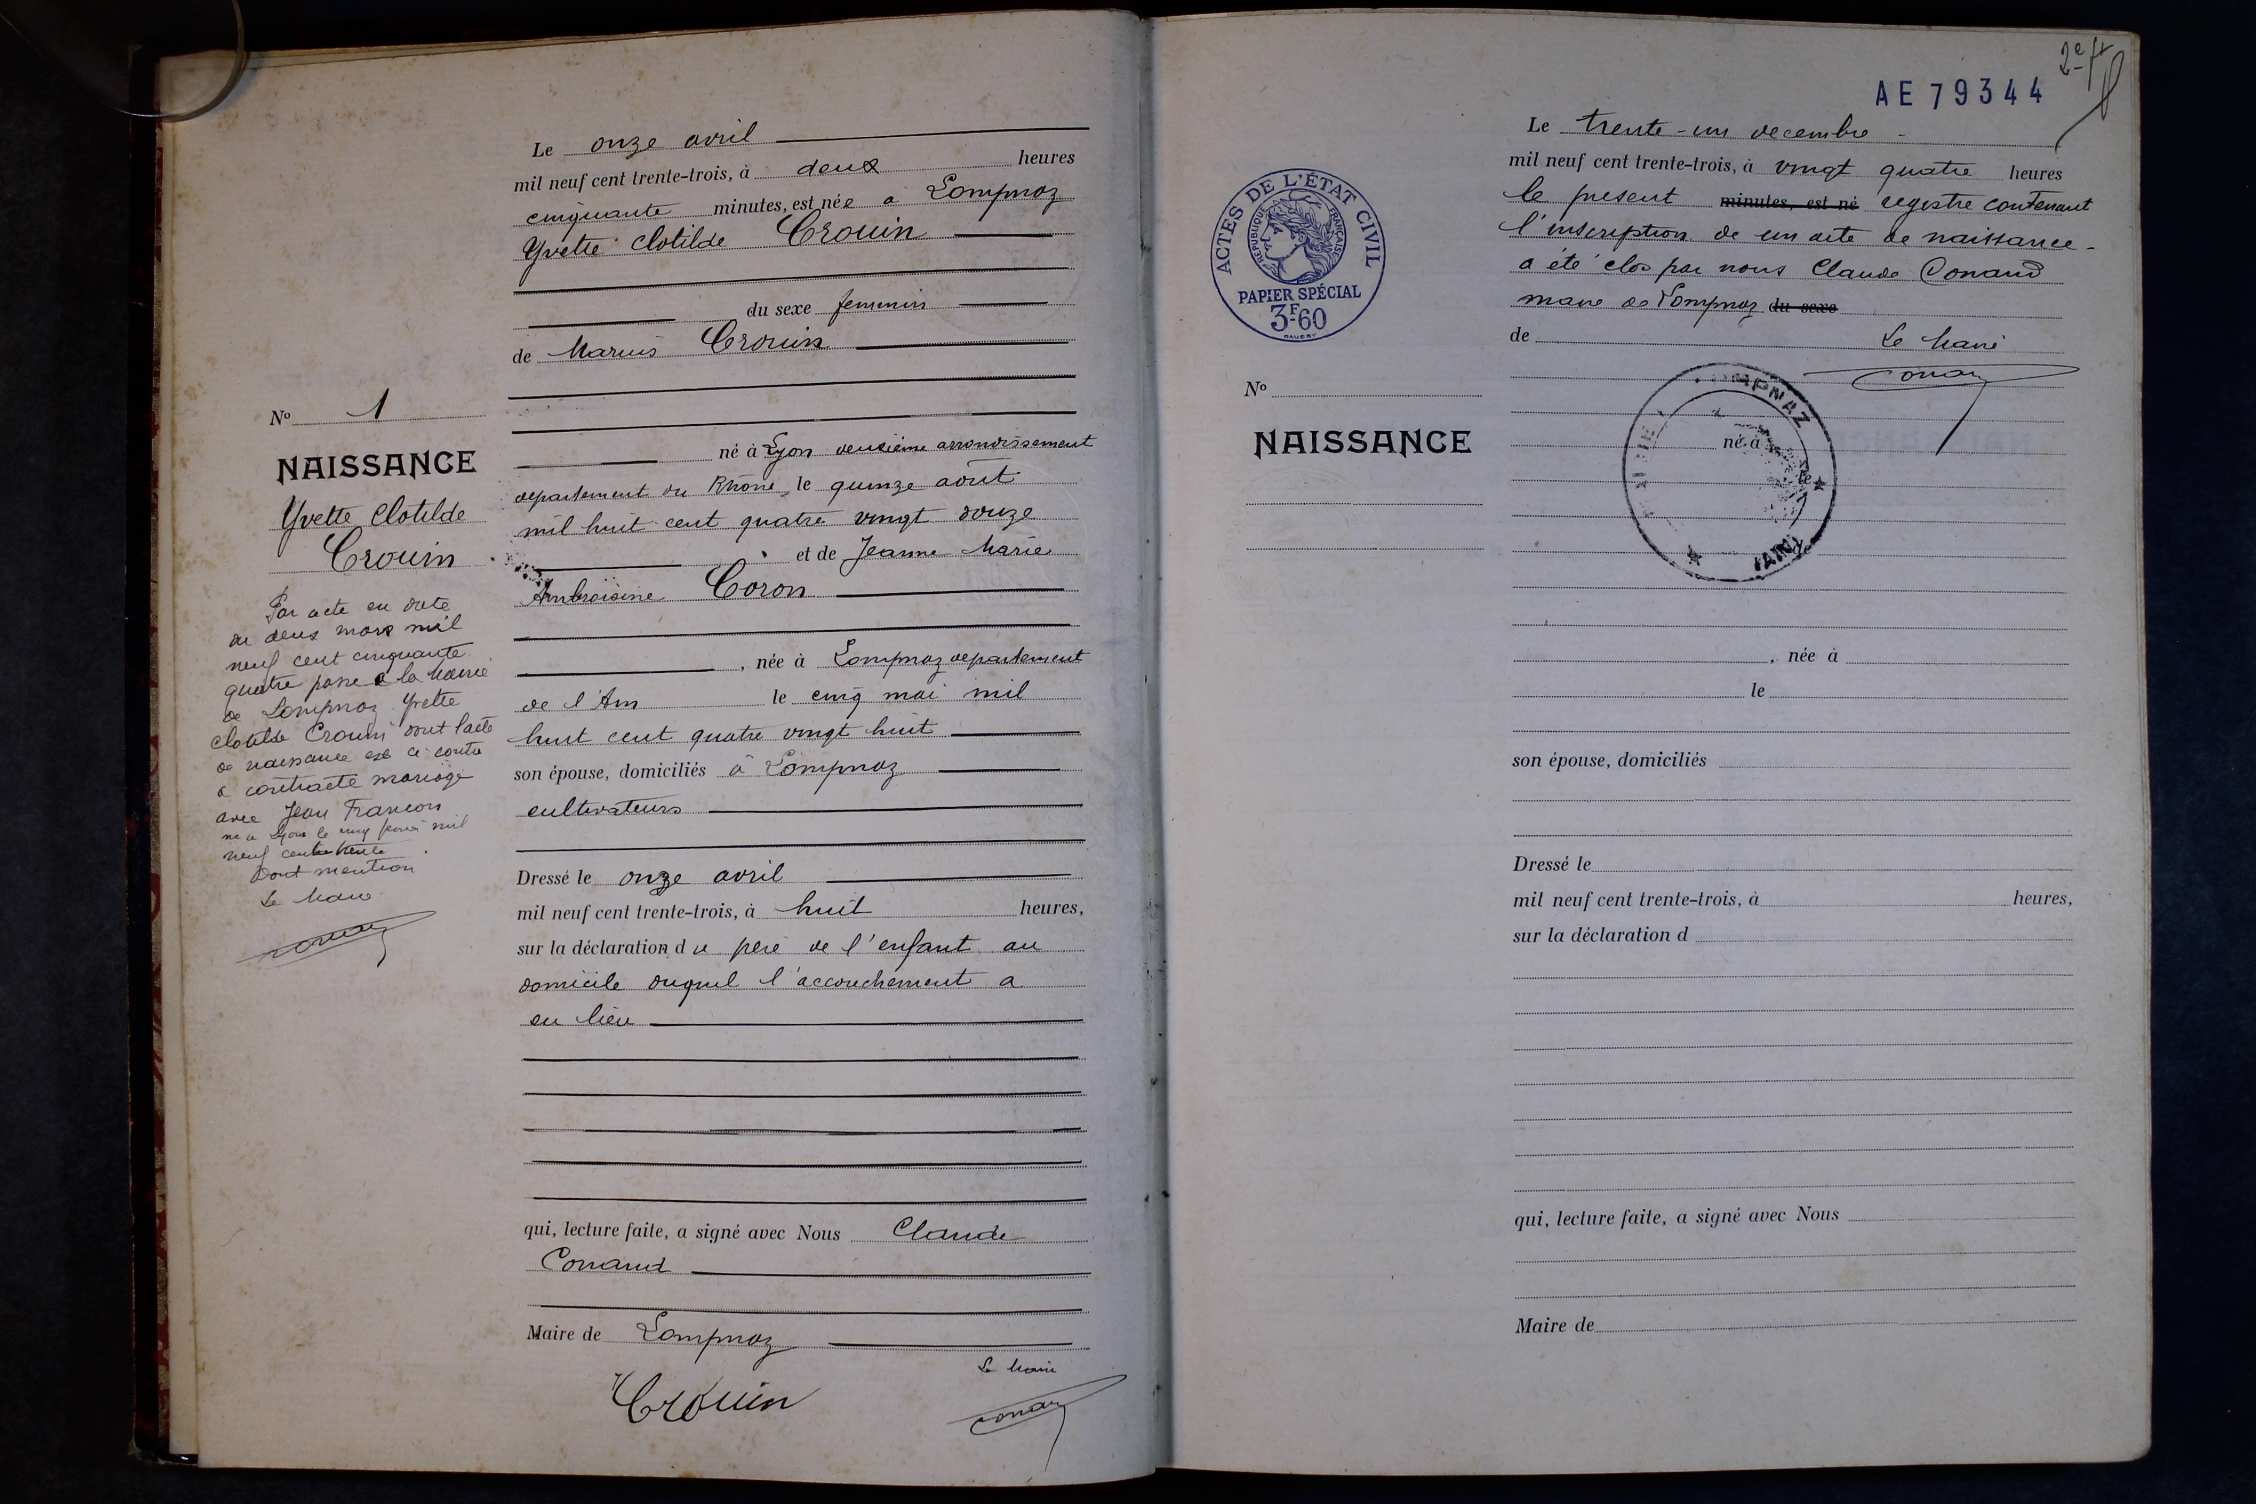 Le onze avril
mil neuf cent trente-trois, à deux heures
cinquante minutes, est née à Lompnaz
Yvette Clotilde Crouin
du sexe feminin
de Marius Crouin
né à Lyon deuxième arrondissement
departement du Rhône, le quinze août
mil huit cent quatre vingt douze
et de Jeanne Marie
Ambroisine Coron
, née à Lompnaz departement
de l'Ain le cinq mai mil
huit cent quatre vingt huit
son épouse, domiciliés à Lompnaz
cultivateurs
Dressé le onze avril
mil neuf cent trente-trois, à huit heures,
sur la déclaration du père de l'enfant au
domicile duquel l'accouchement a
eu lieu
qui, lecture faite, a signé avec Nous Claude
Conand
Maire de Lompnaz
Le Maire
Crouin
Conand
No 1
NAISSANCE
Yvette Clotilde
Crouin
Par acte en date
du deux mars mil
neuf cent cinquante
quatre passé à la Mairie
de Lompnaz Yvette
Clotilde Crouin dont l'acte
de naissance est ci contre
a contracté mariage
avec Jean Francon
né a Lyon le cinq mil
neuf cent trente
Dont mention
Le Maire
Conand
2e f
AE 79344
Le trente-un decembre
mil neuf cent trente-trois, à vingt quatre heures
le present minutes, est né registre contenant
l'inscription de un acte de naissance
a été clos par nous Claude Conand
maire de Lompnaz du sexe
de
Le Maire
Conand
ACTES DE L'ÉTAT CIVIL
RÉPUBLIQUE FRANÇAISE
PAPIER SPÉCIAL
3F60
No
NAISSANCE
MPNAZ
(AIN)
né à
le
, née à
le
son épouse, domiciliés
Dressé le
mil neuf cent trente-trois, à heures,
sur la déclaration d
qui, lecture faite, a signé avec Nous
Maire de